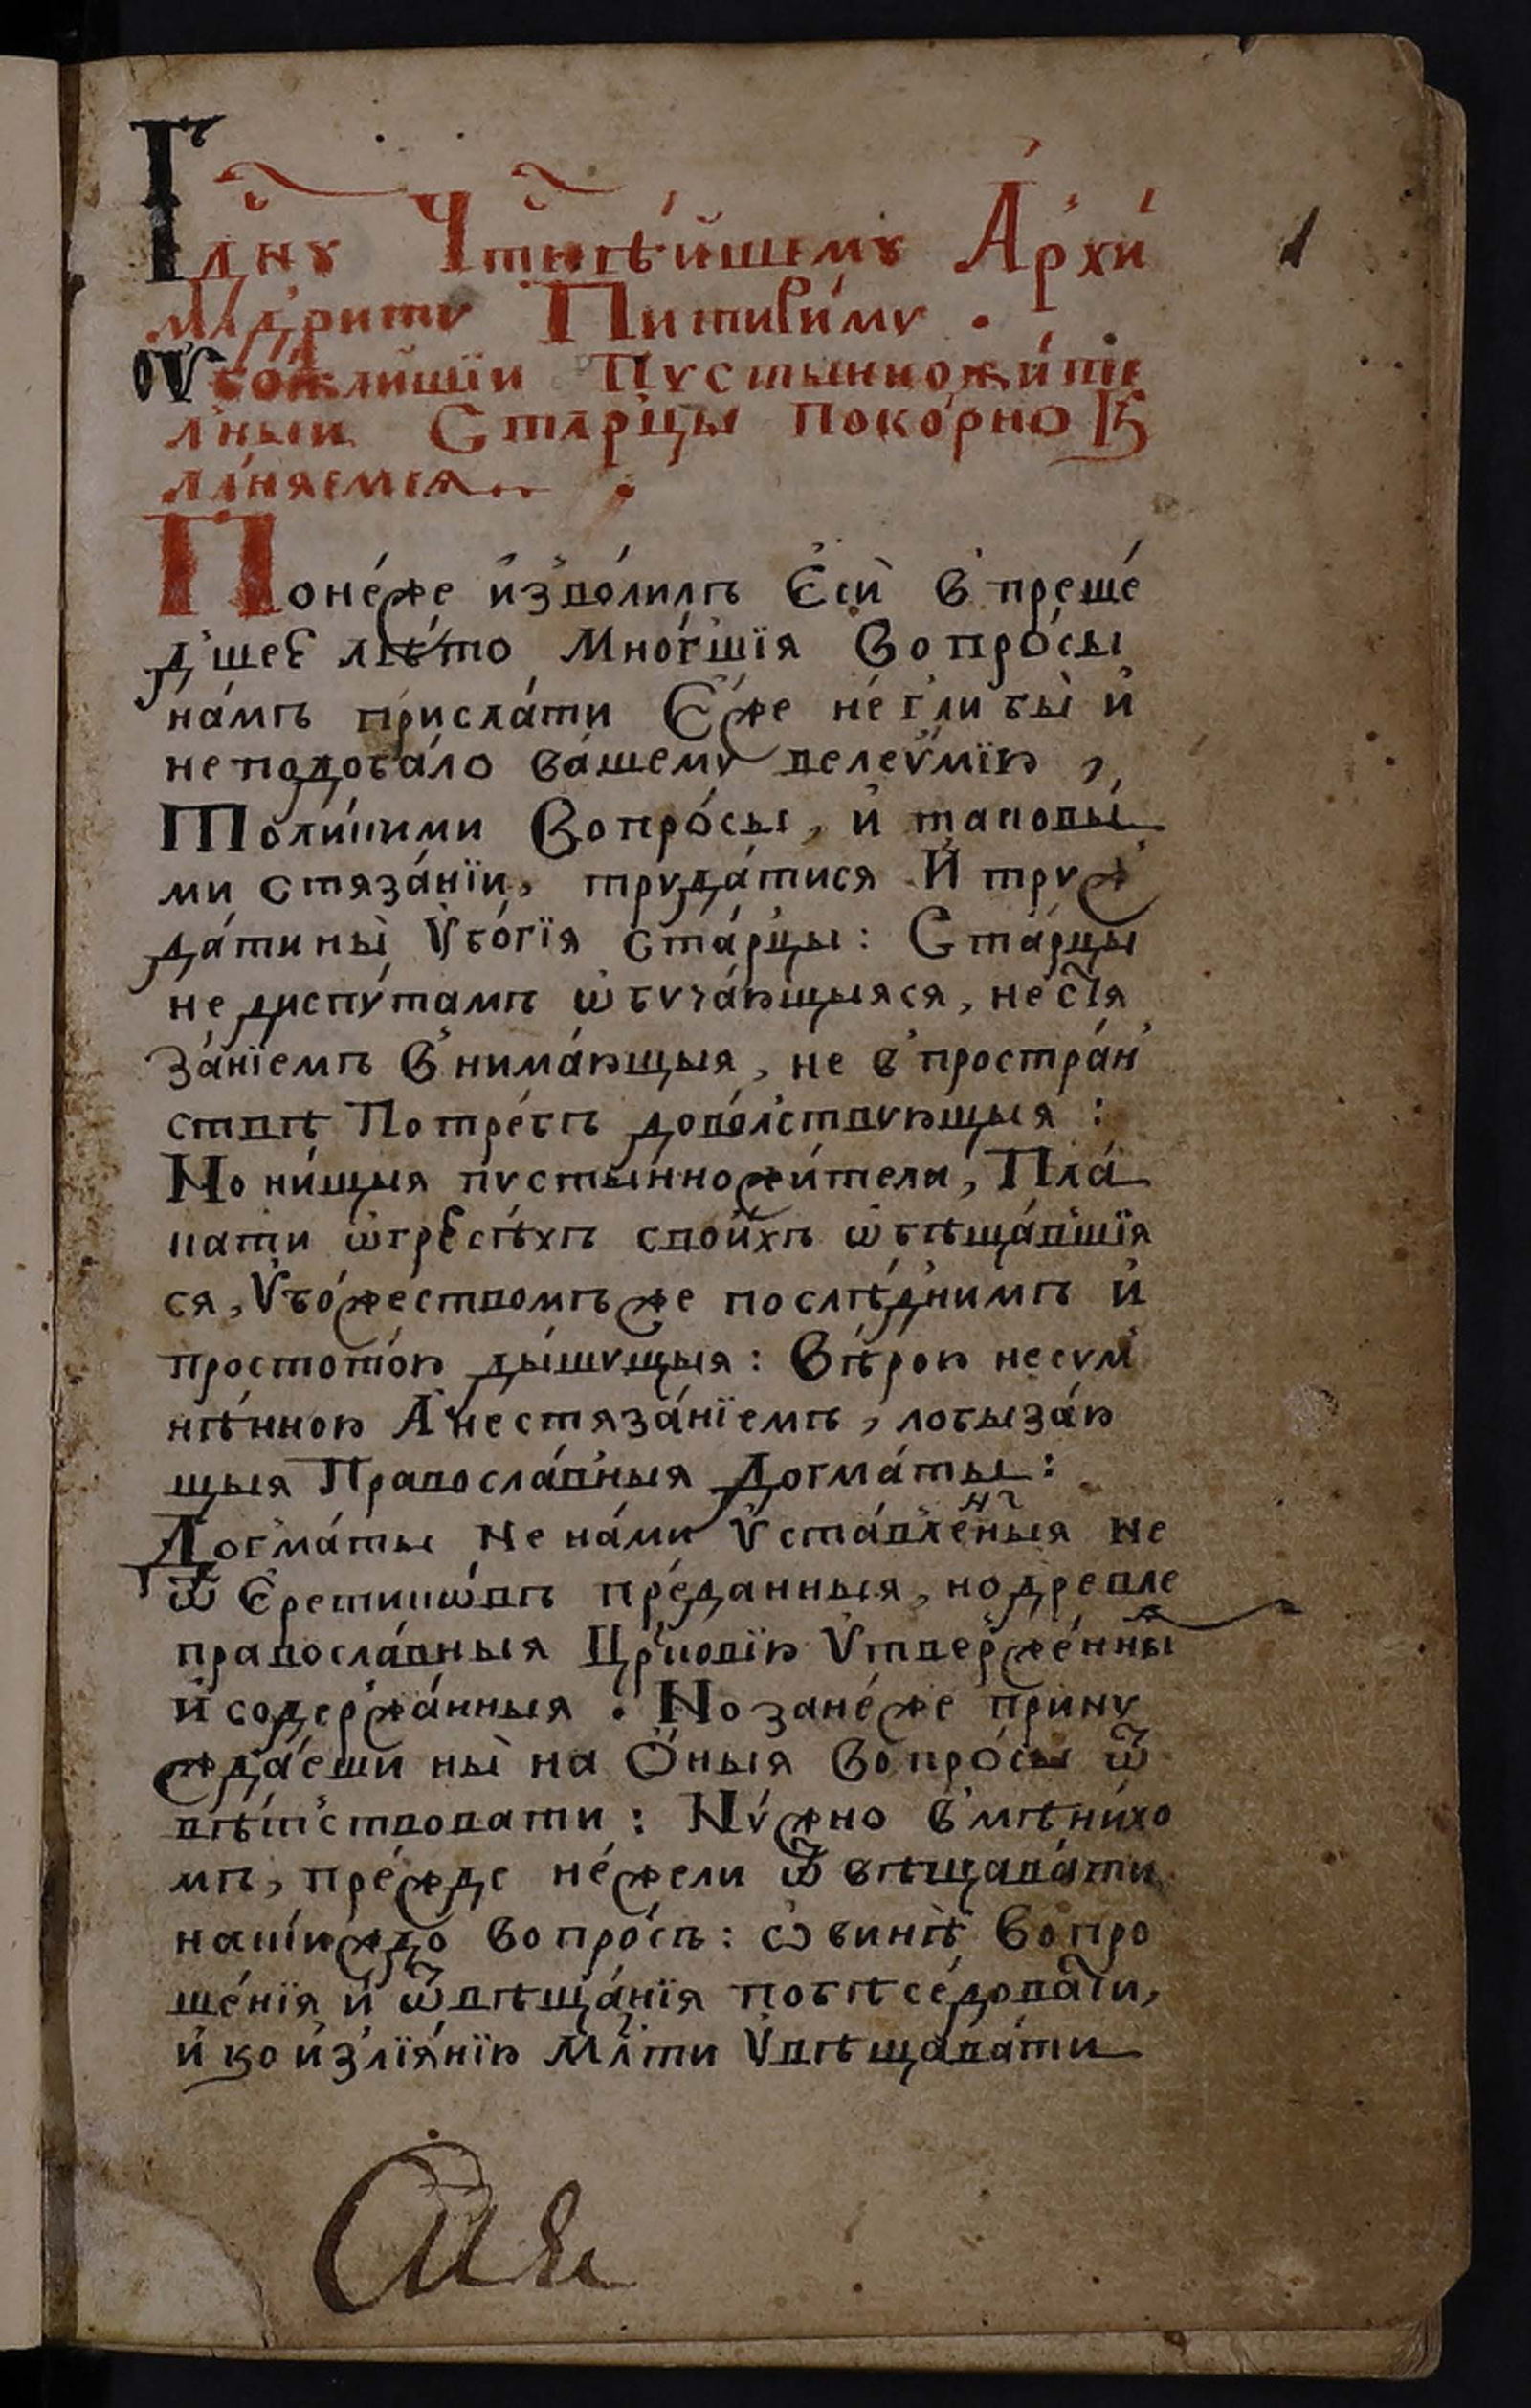 Гд҃нꙋ Ч҃тнѣ́йшемꙋ А҆рхи́
мадриту Питири́му .
Оу҆бо́жайшїи Пꙋстынножи́те
лныи Ста́рцы поко́рно К
ла́няемся .
Поне́же и҆зво́лилъ Є҆си̑ в̾ преше́
д̾шее лѣ́то Мно́гшїѧ Вопро́сы
на́мъ присла́ти Є҆́же не́гли бы̀ и҆
неподоба́ло ва́шему велеꙋ́мїю ,
Толи́кими Вопро́сы, и҆ таковы́
ми стѧза́нїи, трꙋда́тисѧ И҆ трꙋж
да́ти ны̀ Ѵ҆бо́гїѧ ста́рцы : Ста́рцы
не диспꙋ́тамъ ѡ҆бꙋча́ющыѧсѧ, не стѧ
за́нїемъ в̾нима́ющыѧ, не в̾ простра́н
ствѣ Потре́бъ дово́лствꙋющыѧ :
Но ни́щыѧ пꙋсты́нножи́тели, Пла́
кати ѡ҆гресѣ́хъ свои́хъ ѡ҆бѣща́вшїѧ
сѧ, Ѵ҆бо́жествомъ же послѣ́днимъ и҆
простото́ю ды́шꙋщыѧ : Вѣ́рою несꙋм
нѣ́нною А҆ нестѧза́нїемъ , лобыза́ю
щыѧ Правосла́вныѧ Догма́ты :
Догма́ты не на́ми ѵ҆ста́вле́нныѧ не
ѿ Є҆ретикѡ́въ пре́данныѧ, но дре́вле
правосла́вныѧ Цр҃ковїю Ѵ҆тверже́нны̑
и҆ содержа́нныѧ . Но зане́же прину
жда́еши ны̀ на Ѻ҆́ныѧ вопро́сы ѿ
вѣ́тствовати : Нꙋ́жно в̾мѣни́хо
мъ, пре́жде не́жели ѿвѣщава́ти
на кі́йждо вопро́съ : ѡ҆ винѣ̀ вопро
ше́нїѧ и҆ ѿвѣща́нїѧ побѣсе́довати,
и҆ ко и҆злїѧ́нїю Мл҃ти Ѵ҆вѣщава́ти